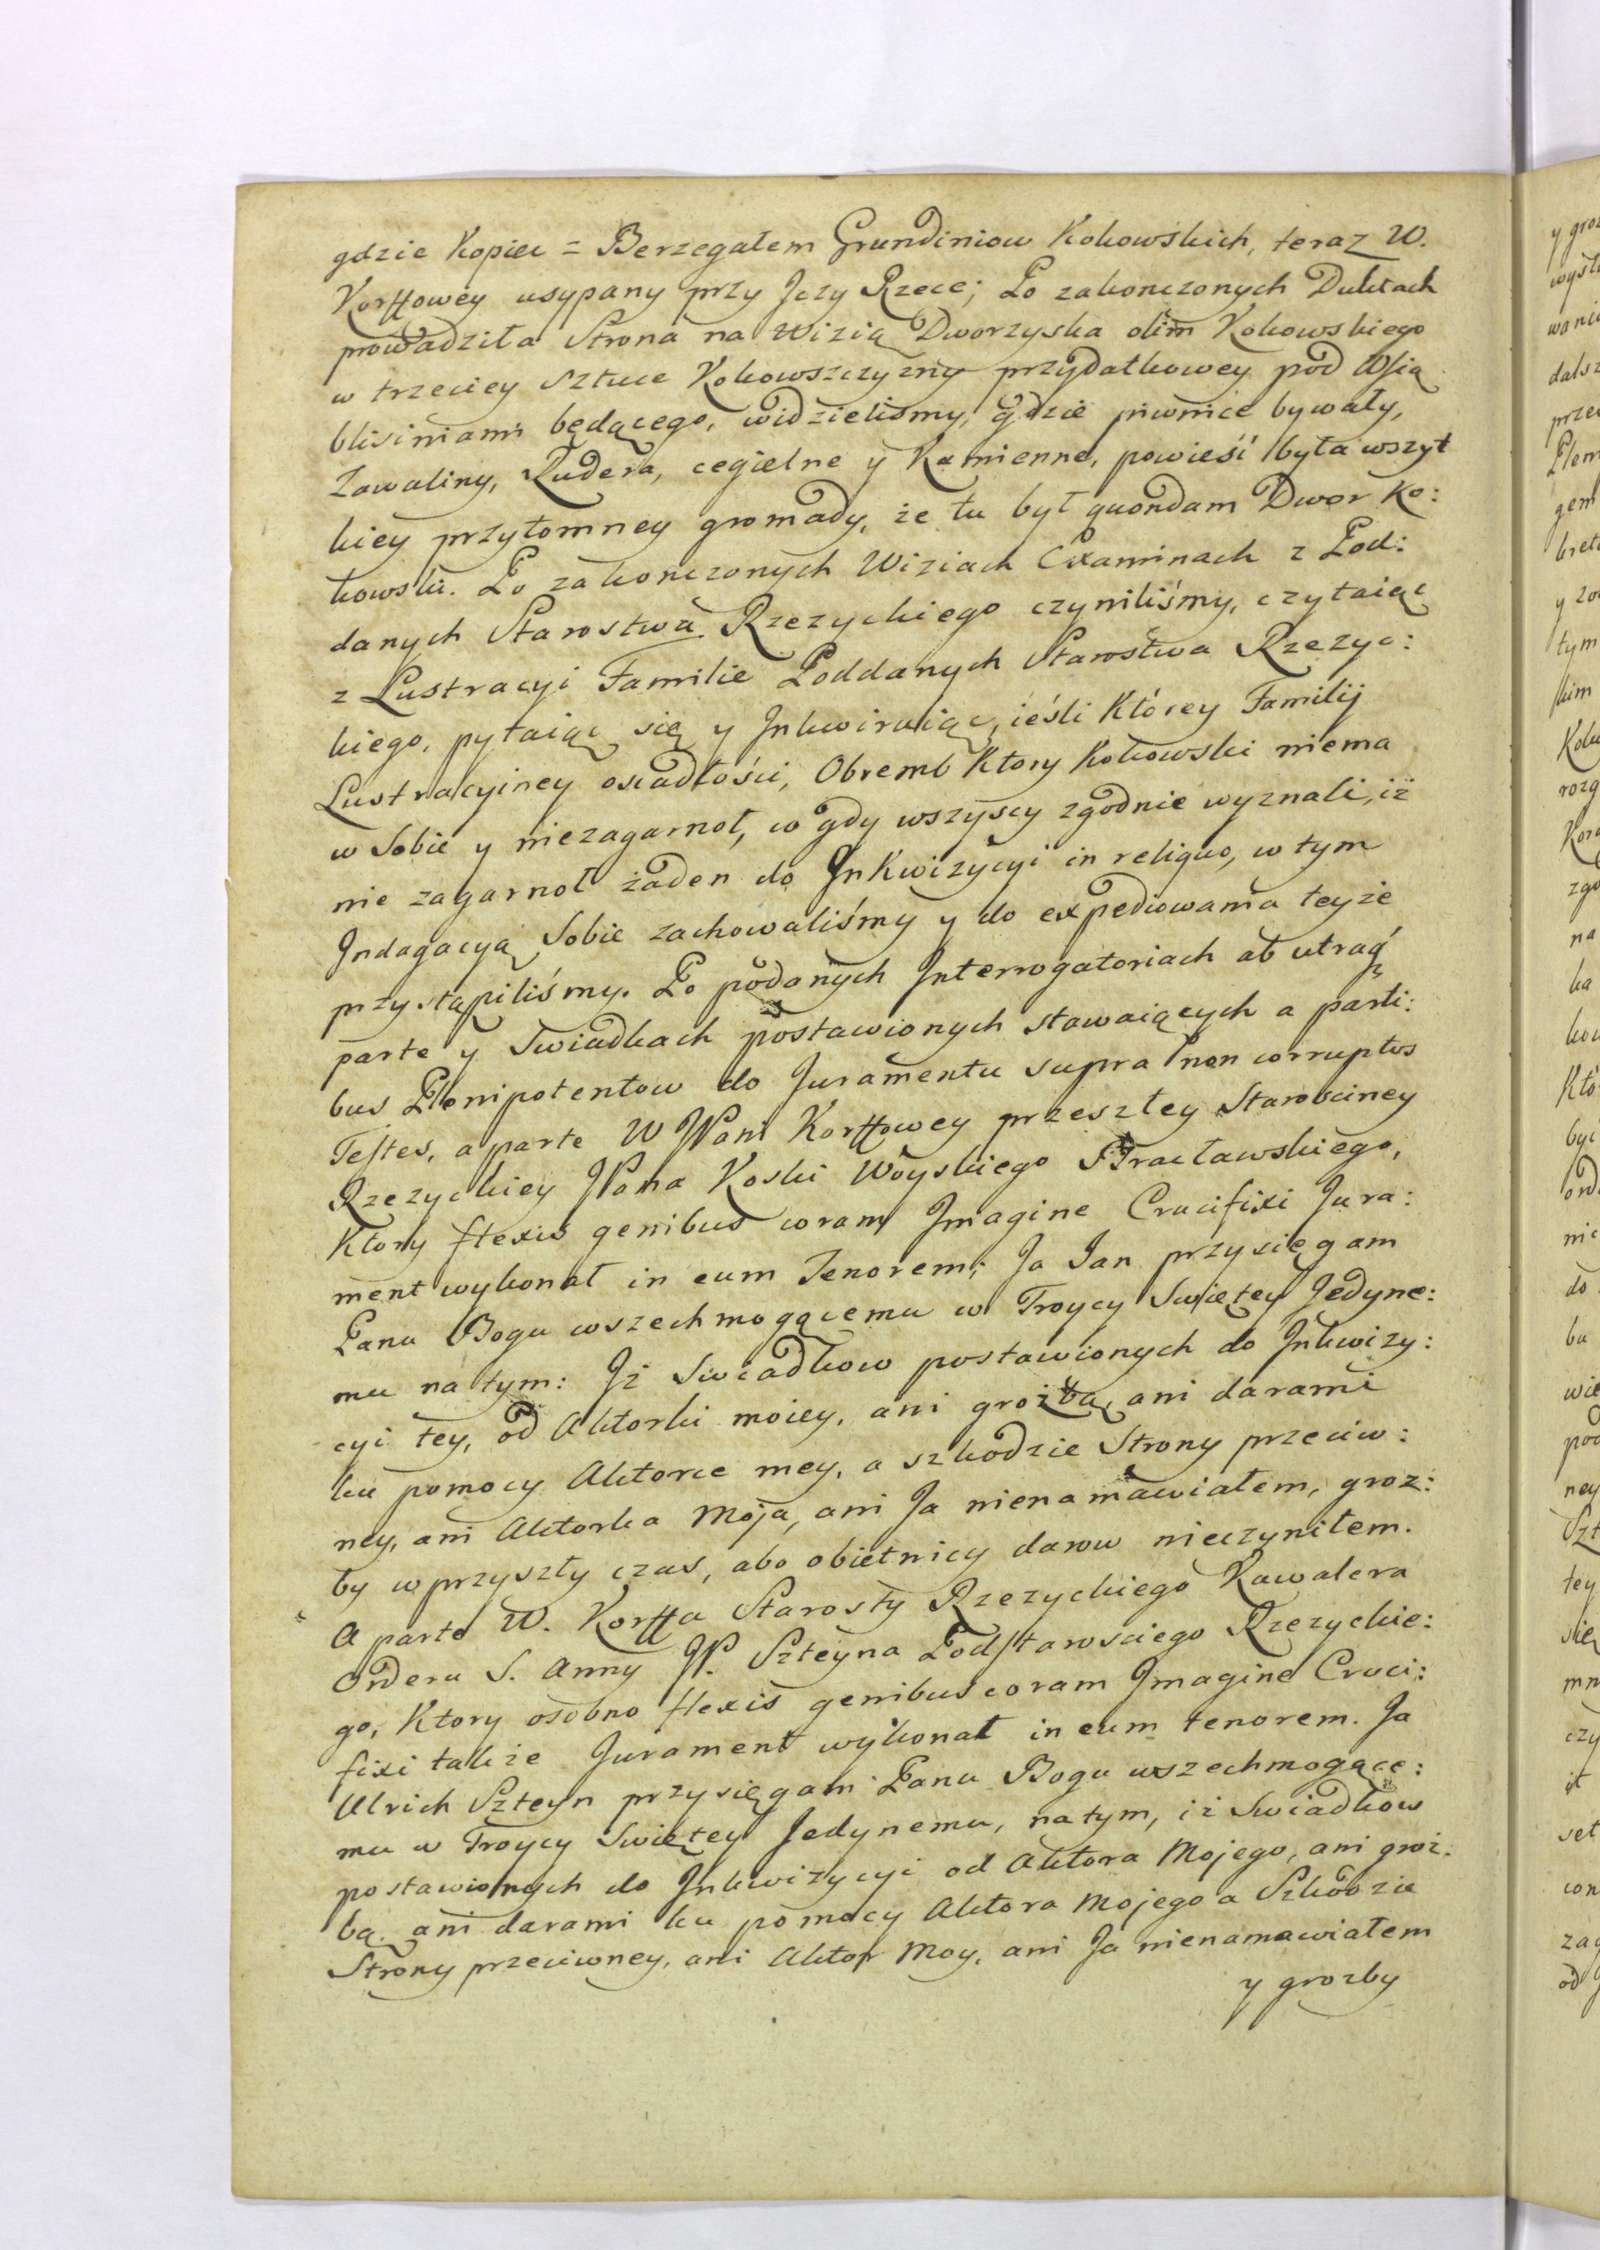 gdzie Kopiec = Berzegałem Grundiniow Kokowskich, teraz W.
Korffowey usypany przy Jczy Rzece; Po zakonczonych Duktach
prowadziła Strona na Wizią Dworzyska olim Kokowskiego
w trzeciey sztuce Kokowszczyzny przydatkowey pod Wsią
blisiniami będącego, widzieliśmy, gdzie piwnice bywały,
Zawaliny, Rudera, cegielne y Kamienne, powieść była wszyt
kiey przytomney gromady, że tu był quondam Dwor Ko:
kowski. Po zakonczonych Wiziach Examinach z Pod:
danych Starostwa Rzezyckiego czyniliśmy, czytaiąc
z Lustracyi Familie Poddanych Starostwa Rzezyc:
kiego, pytaiąc się y Jnkwiruiąc, ieśli Którey Familij
Lustracyiney osiadłości, Obremb Ktory Kokowski niema
w Sobie y niezagarnoł, co gdy wszyscy zgodnie wyznali, iż
nie zagarnoł żaden do JnKwizycyi in reliquo, w tym
Jndagacyą Sobie zachowaliśmy y do expediowania teyże
przystąpiliśmy. Po podanych Jnterrogatoriach ab utraq
parte y Swiadkach postawionych stawaiących a parti:
bus Plenipotentow do Juramentu supra non corruptos
Testes, a parte W JPani Korffowey przeszłey Starościney
Rzezyckiey JPana Koski Woyskiego Bracławskiego,
Ktory flexis genibus coram Jmagine Crucifixi Jura:
ment wykonał in eum Tenorem; Ja Jan przysięgam
Panu Bogu wszechmogącemu w Troycy Swiętey Jedyne:
mu na tym: Jż Swiadkow postawionych do Jnkwizy:
cyi tey, od Aktorki moiey, ani groźbą, ani darami
ku pomocy Aktorce mey, a szkodzie Strony przeciw:
ney, ani Aktorka Moja, ani Ja nienamawiałem, groz:
by w przyszły czas, abo obietnicy darow nieczyniłem.
A parte W. Korffa Starosty Rzezyckiego Kawalera
Orderu S. Anny JP. Szteyna Podstarosciego Rzezyckie:
go, Ktory osobno flexis genibus coram Jmagine Cruci:
fixi także Jurament wykonał in eum tenorem. Ja
Ulrich Szteyn przysięgam Panu Bogu wszechmogące:
mu w Troycy Swiętey Jedynemu, na tym, iż Swiadkow
postawionych do Jnkwizycyi od Aktora Mojego, ani groż:
bą, ani darami ku pomocy Aktora Mojego a Szkodzie
Strony przeciwney, ani Aktor Moy, ani Ja nienamawiałem
y grozby